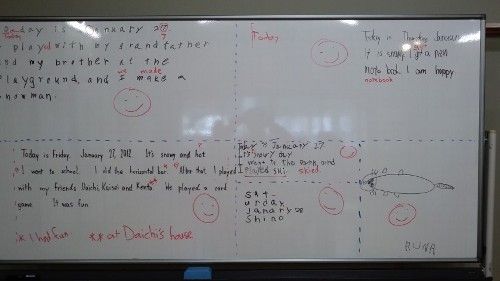 day is January 2
Today
I played with my grandfather
and my brother at the
we made
playground, and I make a
snowman.
Today
Today is Thursday January
It is snowy I got a new
note book I am happy
notebook
Today is Friday, January 27, 2012. It's snowy and hot
I went to school. I did the horizontal bar. After that, I played
with my friends Daichi, Kaisei and Kento. We played a card
game. It was fun.
* I had fun
** at Daichi's house
Today is January 27
It's snowy day
I went to the park and
I played ski.
skied.
sat
urday
January 28
Shino
RUNA